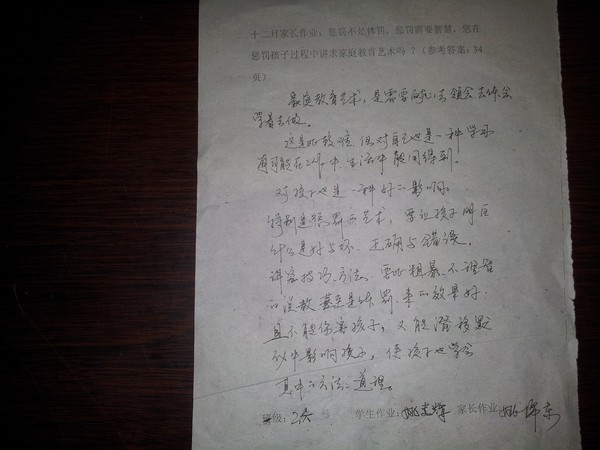 十二月家长作业：惩罚不是体罚，惩罚需要智慧，您在
惩罚孩子过程中讲求家庭教育艺术吗？（参考答案：34
页）
家庭教育艺术，是需要耐心去领会去体会
学着去做。
这是比较难，但对自己也是一种学习
有可能在工作中、生活中能用得到。
对孩子也是一种好的影响。
特别是惩罚的艺术，要让孩子明白
什么是好与坏、正确与错误。
讲究技巧、方法、要比粗暴、不理智
的说教甚至是体罚来的效果好
且不能伤害孩子，又能潜移默
化中影响孩子，使孩子也学会
其中的方法、道理。
班级： 学生作业： 家长作业：